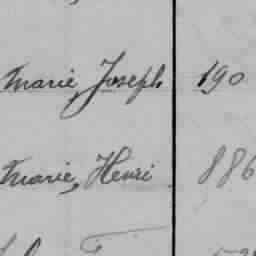 Marie, Joseph 190
Marie, Henri 886